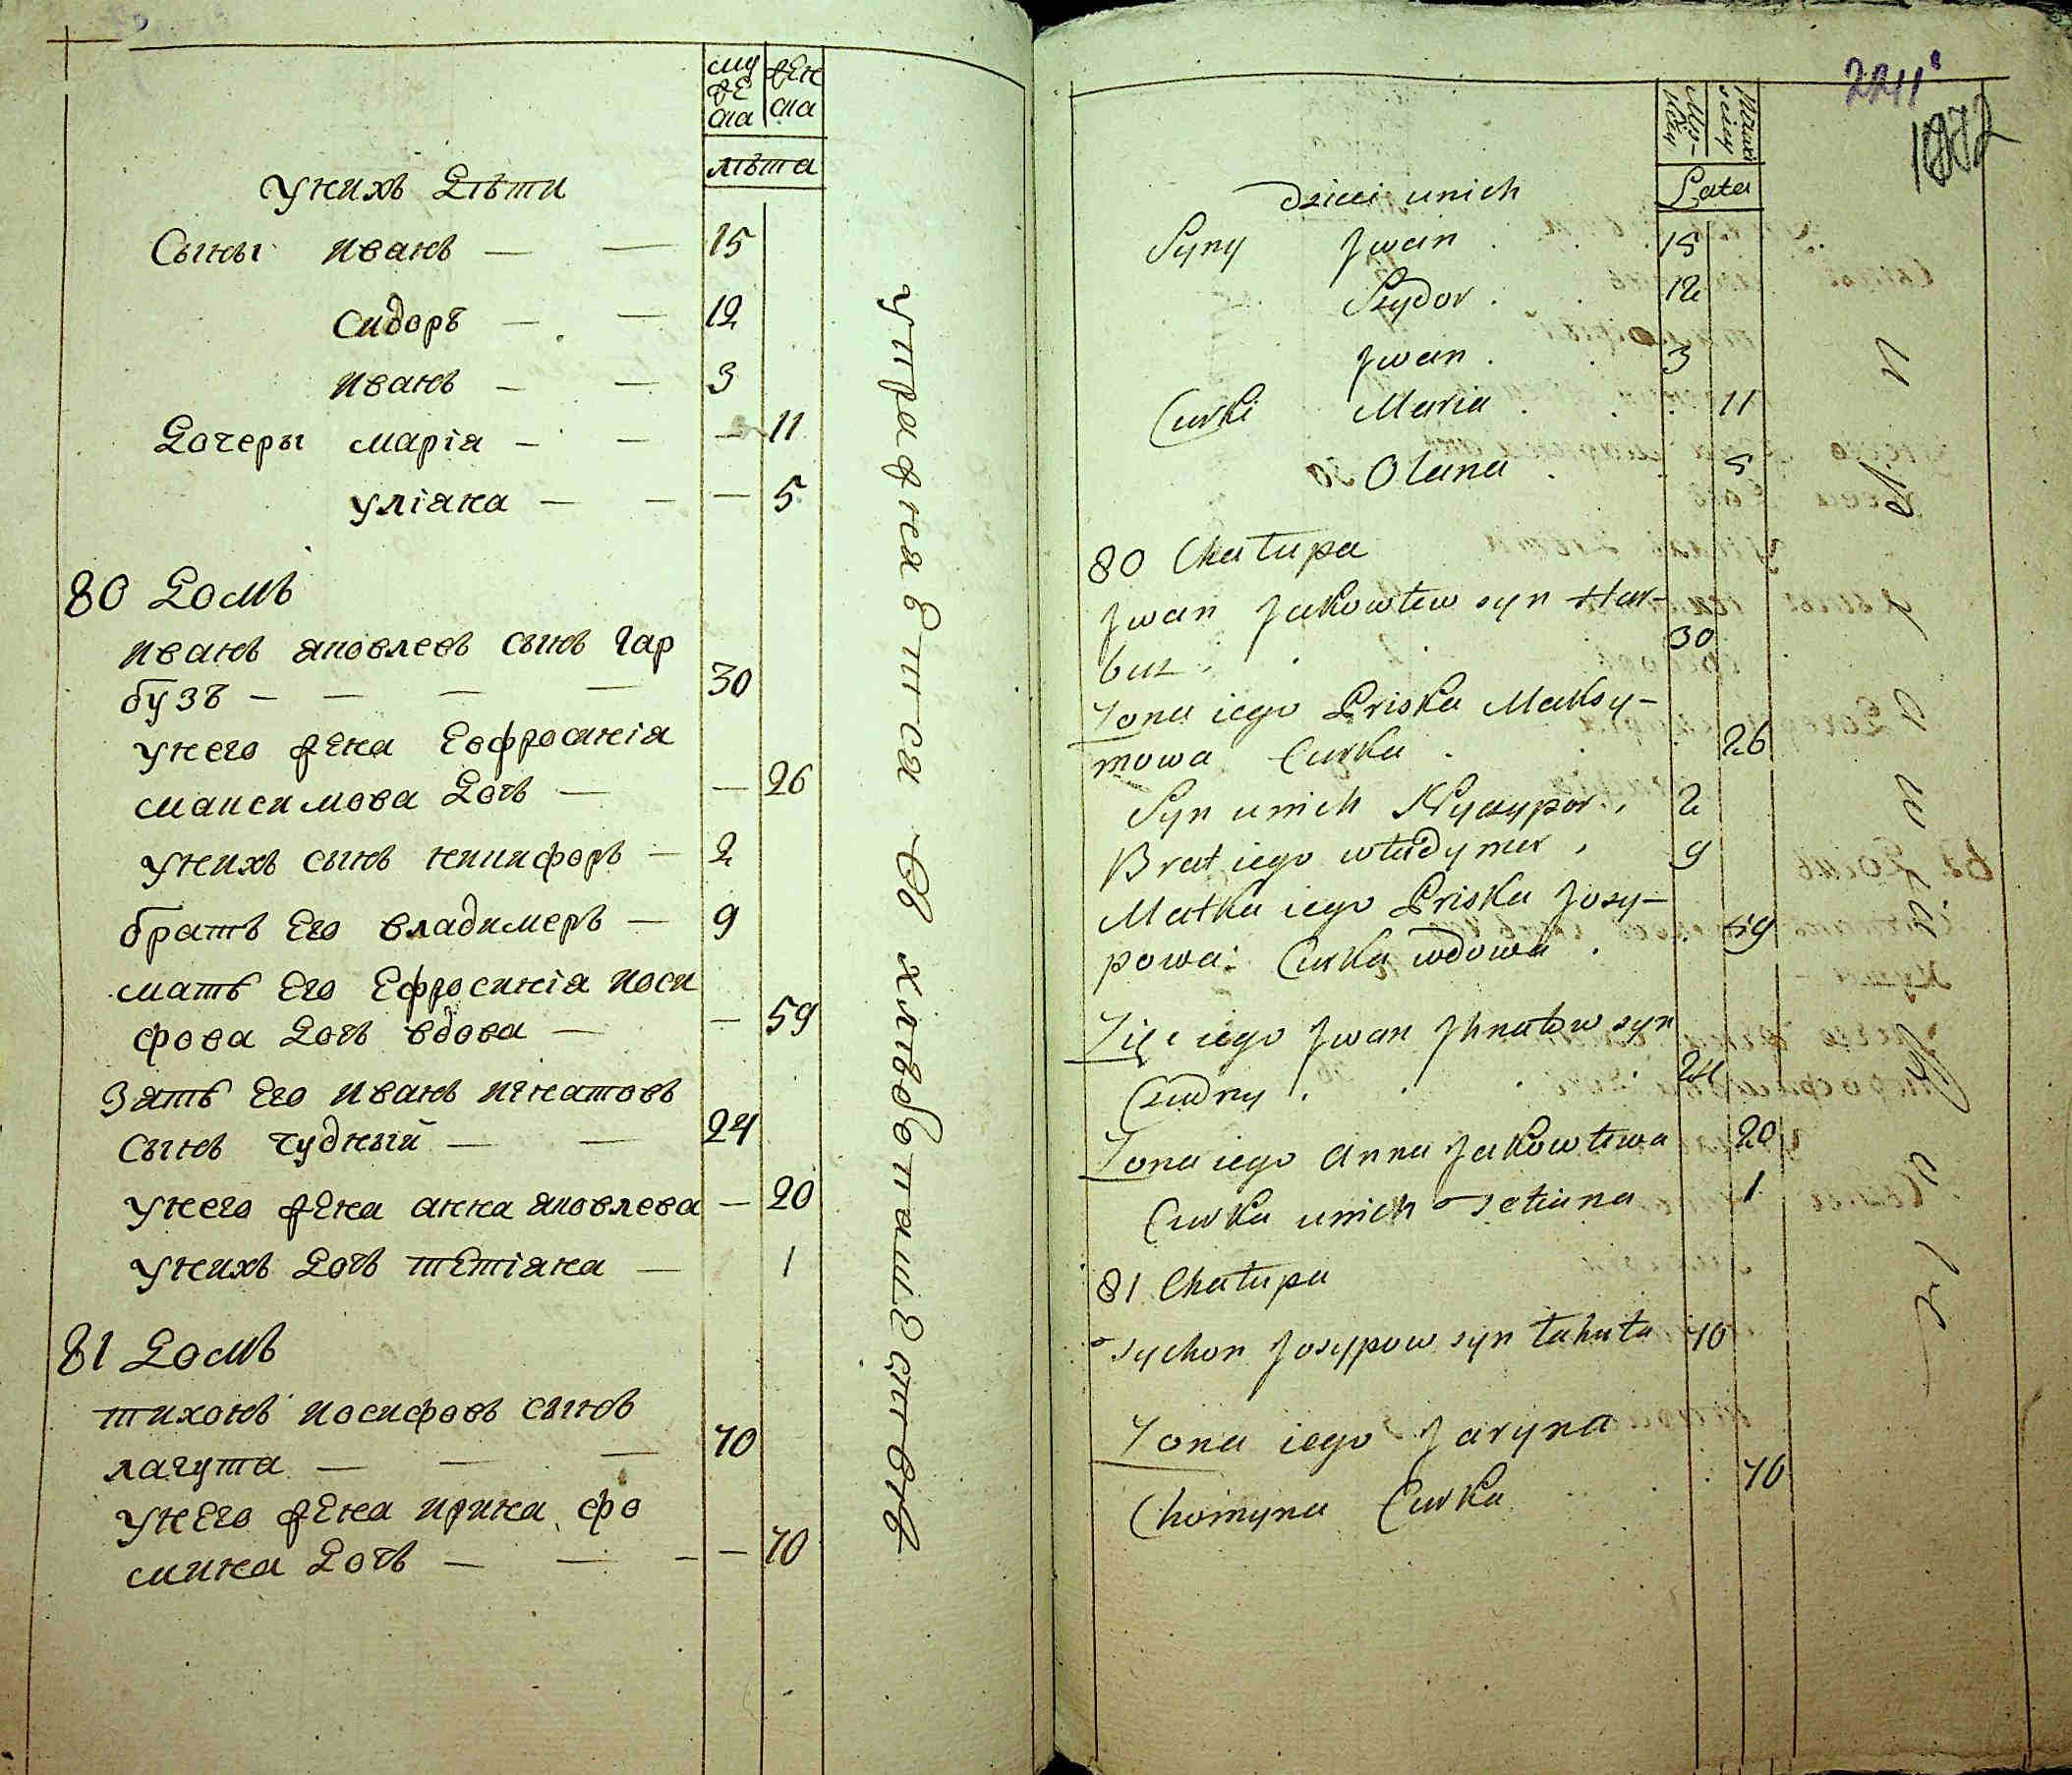 му
же
ска
жен
ска
лѣта
У нихъ Дѣти
Сыны Иванъ — — 15
Сидоръ — — 12
Иванъ — — 3
Дочеры Марія — — — 11
Уліяна — — — 5
80 Домъ
Иванъ Яковлевъ сынъ Гар
бузъ — — — — 30
У него жена Еофросинія
Максимова Дочъ — — 26
У нихъ сынъ Никифоръ — 2
братъ Его Владимеръ — 9
мать Его Ефросинія Йоси
фова Дочъ вдова — — 59
Зять Его Иванъ Игнатовъ
Сынъ Чудный — — 24
У него жена Анна Яковлева — 20
У нихъ Дочъ Тетіяна — 1
81 Домъ
Тихонъ Йосифовъ сынъ
Лагута — — — 70
У нЕго жена Ирина Фо
мина Дочъ — — — — 70
упражняется въ хлѣбопашествѣ
2211
1072
Męż-
Lata
Dzieci u nich
Syny Jwan 15
Szydor 12
Jwan 3
Curki Maria 11
Olana 5
80 Chałupa
Jwan Jakowlew syn Har-
buz 30
Zona iego Priska Maksy-
mowa Curka 26
Syn u nich Nyczypor 2
Brat iego Władymer 9
Matka iego Priska Josy-
powa Curka wdowa 59
Zięć iego Jwan Jhnatow syn
Czudny 24
Zona iego Anna Jakowlewa 20
Curka u nich Tetiana 1
81 Chałupa
Tychon Josypow syn Łahuta 70
Zona iego Jaryna
Chomyna Curka 70